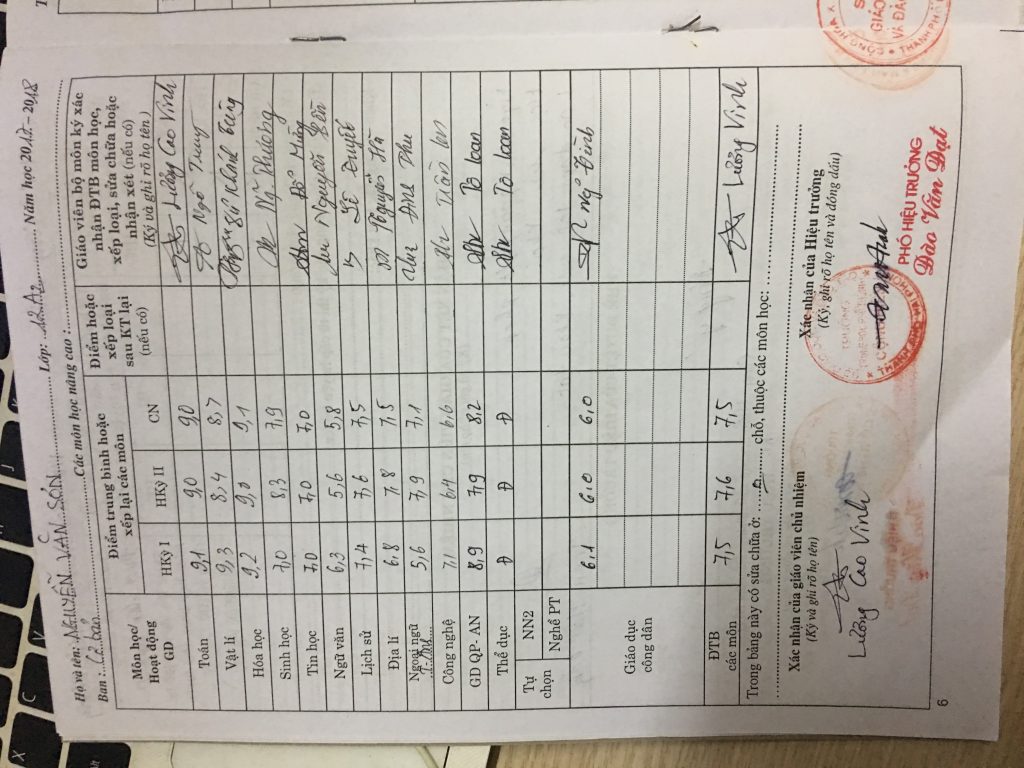 Họ và tên: NGUYỄN VĂN SƠN Lớp: 12A2 Năm học 2017 - 2018
Ban: Cơ bản Các môn học nâng cao:
Môn học/ Hoạt động GD | Điểm trung bình hoặc xếp lại các môn | Điểm hoặc xếp loại sau KT lại (nếu có) | Giáo viên bộ môn ký xác nhận ĐTB môn học, xếp loại, sửa chữa hoặc nhận xét (nếu có) (Ký và ghi rõ họ tên)
HKỳ I | HKỳ II | CN
Toán 9,1 9,0 9,0 Lương Cao Vinh
Vật lí 9,3 8,4 8,7 Ngô Trung
Hóa học 9,2 9,0 9,1
Sinh học 7,0 8,3 7,9
Tin học 7,0 7,0 7,0
Ngữ văn 6,3 5,6 5,8 Nguyễn
Lịch sử 7,4 7,6 7,5 Lê
Địa lí 6,8 7,8 7,5 Nguyễn Hà
Ngoại ngữ 5,6 7,9 7,1
Công nghệ 7,1 6,4 6,6
GD QP- AN 8,9 7,9 8,2 Tô Loan
Thể dục Đ Đ Đ Tô Loan
Tự chọn NN2
Nghề PT
Giáo dục công dân 6,1 6,0 6,0
ĐTB các môn 7,5 7,6 7,5 Lương Vinh
Trong bảng này có sửa chữa ở: chỗ, thuộc các môn học:
Xác nhận của giáo viên chủ nhiệm
(Ký và ghi rõ họ tên)
Lương Cao Vinh
Xác nhận của Hiệu trưởng
(Ký, ghi rõ họ tên và đóng dấu)
PHÓ HIỆU TRƯỞNG
Đào Văn Đạt
6